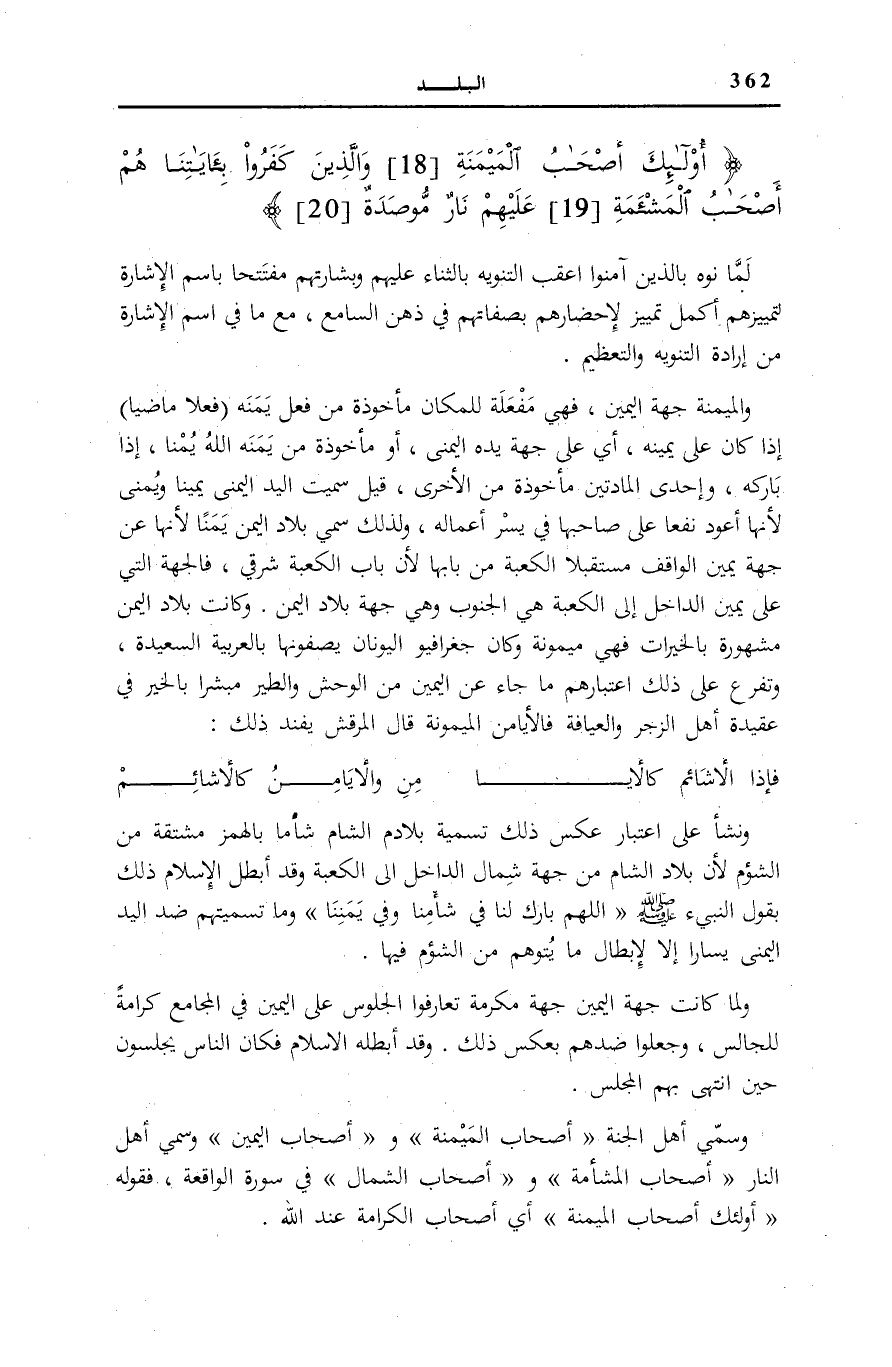 362
البلـــد
﴿ أُوْلَـٰٓئِكَ أَصْحَـٰبُ ٱلْمَيْمَنَةِ [18] وَالَّذِينَ كَفَرُواْ بِـَٔايَـٰتِنَـا هُمْ
أَصْحَـٰبُ ٱلْمَشْـَٔمَةِ [19] عَلَيْهِمْ نَارٌ مُّوصَدَةٌ [20] ﴾
لَمَّا نوه بالذين آمنوا اعقب التنويه بالثناء عليهم وبشارتهم مفتَتحا باسم الإشارة
لتمييزهم أكمل تمييز لإحضارهم بصفاتهم في ذهن السامع ، مع ما في اسم الإشارة
من إرادة التنويه والتعظيم .
والميمنة جهة اليمين ، فهي مَفْعَلَة للمكان مأخوذة من فعل يَمَنَه (فعلا ماضيا)
إذا كان على يمينه ، أي على جهة يده اليمنى ، أو مأخوذة من يَمَنَه اللهُ يُمْنا ، إذا
بَاركه ، وإحدى المادتين مأخوذة من الأخرى ، قيل سميت اليد اليمنى يمينا ويُمنى
لأنها أعود نفعا على صاحبها في يسْر أعماله ، ولذلك سمي بلاد اليمن يَمَنًا لأنها عن
جهة يمين الواقف مستقبلا الكعبة من بابها لأن باب الكعبة شرقي ، فالجهة التي
على يمين الداخل إلى الكعبة هي الجنوب وهي جهة بلاد اليمن . وكانت بلاد اليمن
مشهورة بالخيرات فهي ميمونة وكان جغرافيو اليونان يصفونها بالعربية السعيدة ،
وتفرع على ذلك اعتبارهم ما جاء عن اليمين من الوحش والطير مبشرا بالخير في
عقيدة أهل الزجر والعيافة فالأيامن الميمونة قال المرقش يفند ذلك :
فإذا الْاشَائم كالْايـــــــا مِنِ والْايَامِـــــنُ كالْاشائِـــــمْ
ونشأ على اعتبار عكس ذلك تسمية بلادم الشام شأما بالهمز مشتقة من
الشؤم لأن بلاد الشام من جهة شِمال الداخل الى الكعبة وقد أبطل الإسلام ذلك
بقول النبيء ﷺ « اللهم بارك لنا في شأمِنا وفي يَمَنِنَا » وما تسميتهم ضد اليد
اليمنى يسارا إلا لإبطال ما يُتوهم من الشؤم فيها .
ولما كانت جهة اليمين جهة مكرمة تعارفوا الجلوس على اليمين في المجامع كرامةً
للجالس ، وجعلوا ضدهم بعكس ذلك . وقد أبطله الاسلام فكان الناس يجلسون
حين انتهى بهم المجلس .
وسمّي أهل الجنة « أصحاب المَيْمنة » و « أصحاب اليمين » وسمي أهل
النار « أصحاب المشأمة » و « أصحاب الشمال » في سورة الواقعة ، فقوله
« أولئك أصحاب الميمنة » أي أصحاب الكرامة عند الله .